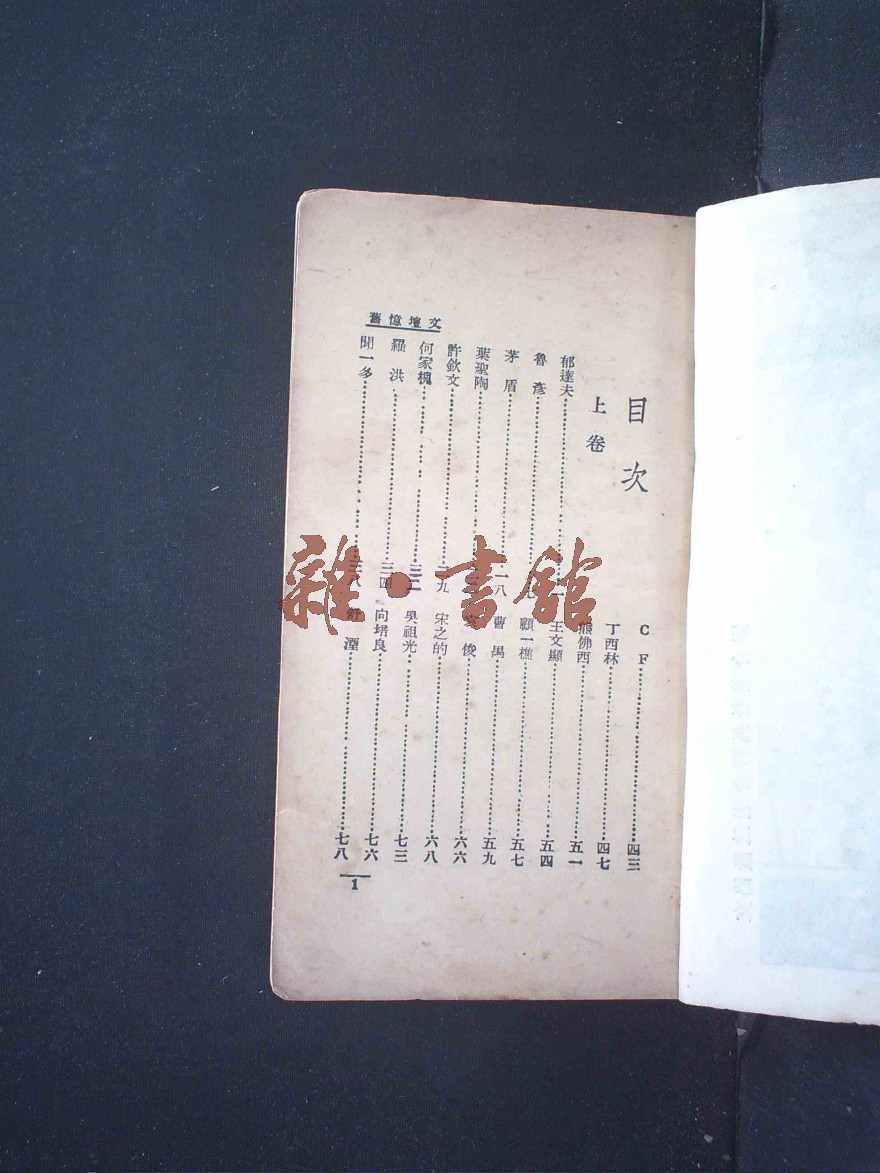 文壇憶舊
目次
上卷
郁達夫……一
魯彥……
茅盾……一八
葉聖陶……
許欽文……二九
何家槐……三二
羅洪……三四
聞一多……三八
CF……四三
丁西林……四七
熊佛西……五一
王文顯……五四
顧一樵……五七
曹禺……五九
袁俊……六六
宋之的……六八
吳祖光……七三
向培良……七六
舒湮……七八
1
雜·書館